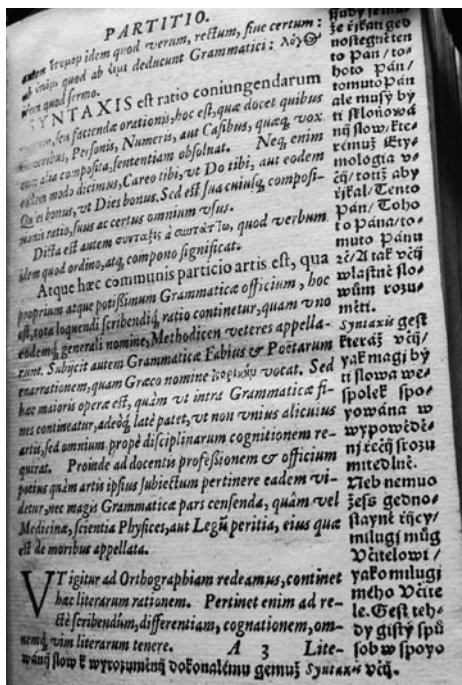 PARTITIO.
autem ἔτυμον idem quod verum, rectum, siue certum:
quod ab deducunt Grammatici: λόγος
idem quod sermo.
SYNTAXIS est ratio coniungendarum
vocum, seu faciendæ orationis, hoc est, quæ docet quibus
Generibus, Personis, Numeris, aut Casibus, quæq; vox
cum alia composita, sententiam obsoluat. Neq; enim
eodem modo dicimus, Careo tibi, vt Do tibi, aut eodem
Qui es bonus, vt Dies bonus. Sed est sua cuiusq; composi-
tionis ratio, suus ac certus omnium vsus.
Dicta est autem συνταξις à συντάττω, quod verbum
idem quod ordino, atq; compono significat.
Atque hæc communis particio artis est, qua
proprium atque potißimum Grammaticæ officium, hoc
est, tota loquendi scribendiq; ratio continetur, quam vno
eodemq; generali nomine, Methodicen veteres appella-
runt. Subijcit autem Grammaticæ Fabius & Poëtarum
enarrationem, quam Græco nomine vocat. Sed
hæc maioris operæ est, quàm vt intra Grammaticæ fi-
nes contineatur, adeoq; latè patet, vt non vnius alicuius
artis, sed omnium propè disciplinarum cognitionem re-
quirat. Proinde ad docentis profeßionem & officium
potius quàm artis ipsius subiectum pertinere eadem vi-
detur, nec magis Grammaticæ pars censenda, quàm vel
Medicina, scientia Physices, aut Legũ peritia, eius quæ
est de moribus appellata.
VT igitur ad Orthographiam redeamus, continet
hæc literarum rationem. Pertinet enim ad re-
ctè scribendum, differentiam, cognationem, om-
nemq; vim literarum tenere. A 3 Lite-
že řjkati ged
nostegnėten
to Pán/ to-
hoto Pán/
tomuto Pán
ale musý by
ti skloňowá
nij slow/ kte-
rémuž Ety-
mologia v-
čij/ totiž aby
řjkal/ Tento
Pán/ Toho
to Pána/ to-
muto Pánu
ꝛč/ A tak včij
wlastně slo-
wům rozu-
měti.
Syntaxis gest
kteráž včij/
yak magi by
ti slowa we-
spolek spo-
yowána w
wypowědě-
nj řečij srozu
mitedlně.
Neb nemuo
žess gedno-
staynė řijcy/
milugi můg
Včitelowi/
yako milugi
mého Včite
le. Gest teh-
dy gistý spů
sob w spoyo
wánij slow k wyrozuměnij dokonalému gemuž Syntaxis včij.